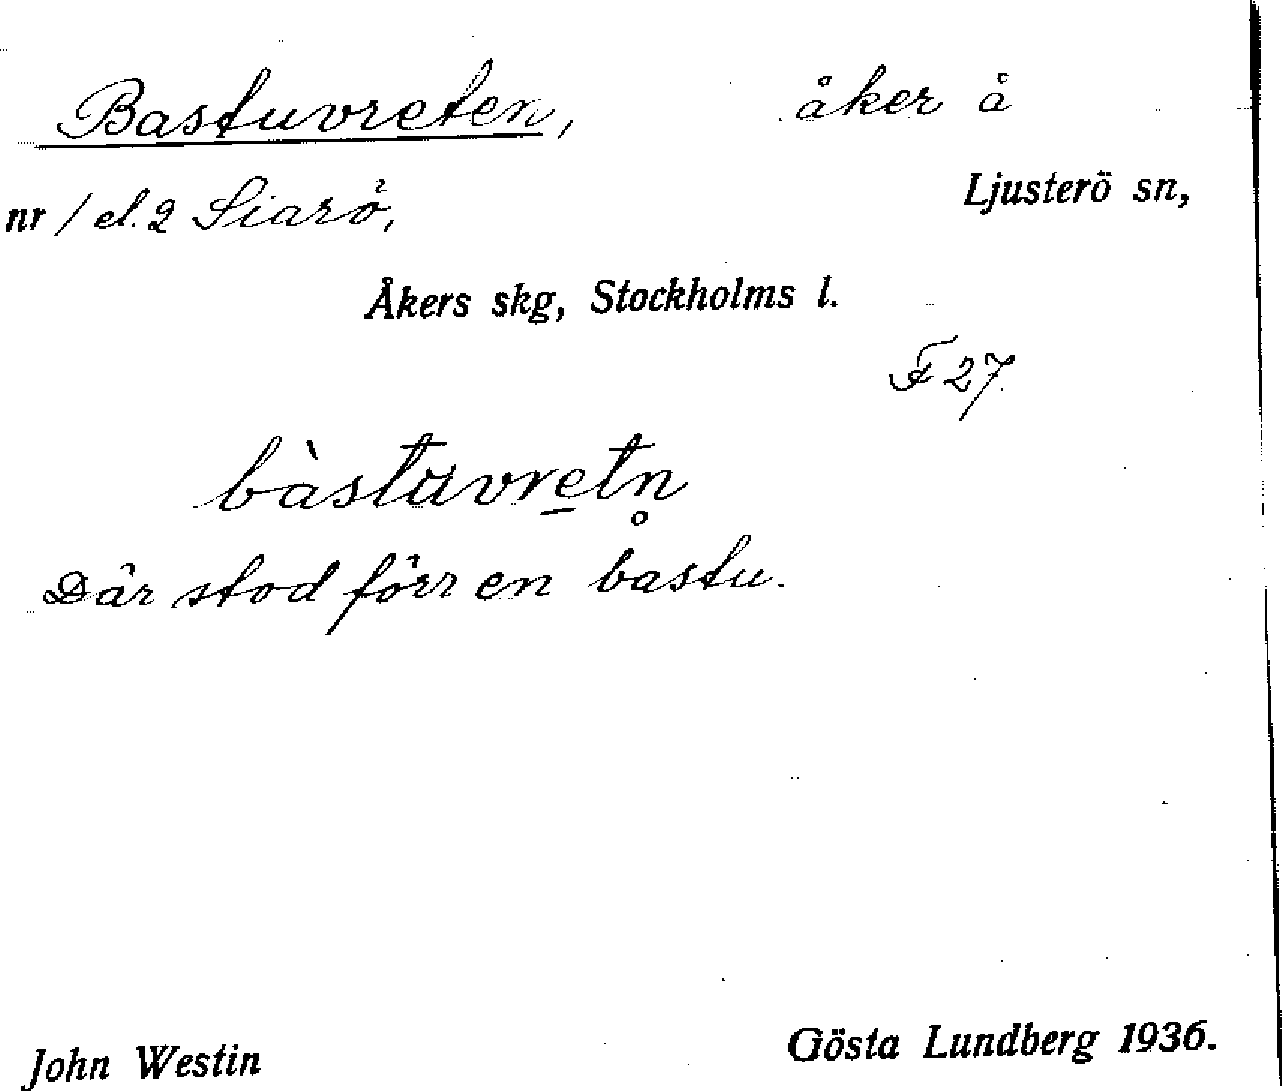 Bastuvreten, åker å
nr 1 el. 2 Siarö, Ljusterö sn,
Åkers skg, Stockholms l.
F 27.
bàstuvretn̥
Där stod förr en bastu.
John Westin Gösta Lundberg 1936.